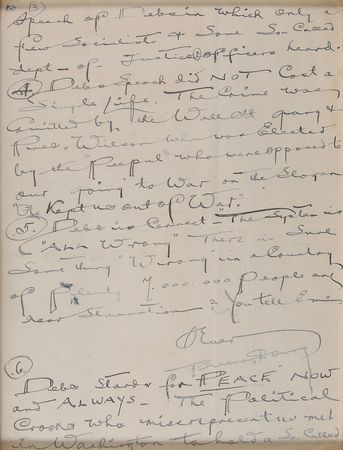 (3)
Speech of Debs in which only a
few Socialists & Some So-Called
dept-of-Justice Officers heard.
(4) Debs Speach did NOT Cost a
Single life. The Crime was
Comitted by the Wall St gang &
Pres. Wilson who was Elected
by the "Peepul" who were opposed to
our going to War on the Slogan
"He Kept us out of War".
(5). Debs is Correct - The System is
"All Wrong" There is Sure
Some thing "Wrong" in a Country
of Plenty 7.000.000 People are
near Starvation?
Over
(6).
Debs Stands for "PEACE" NOW
and ALWAYS - The Political
Crooks who misrepresent us met
in Washington to hold a So Called